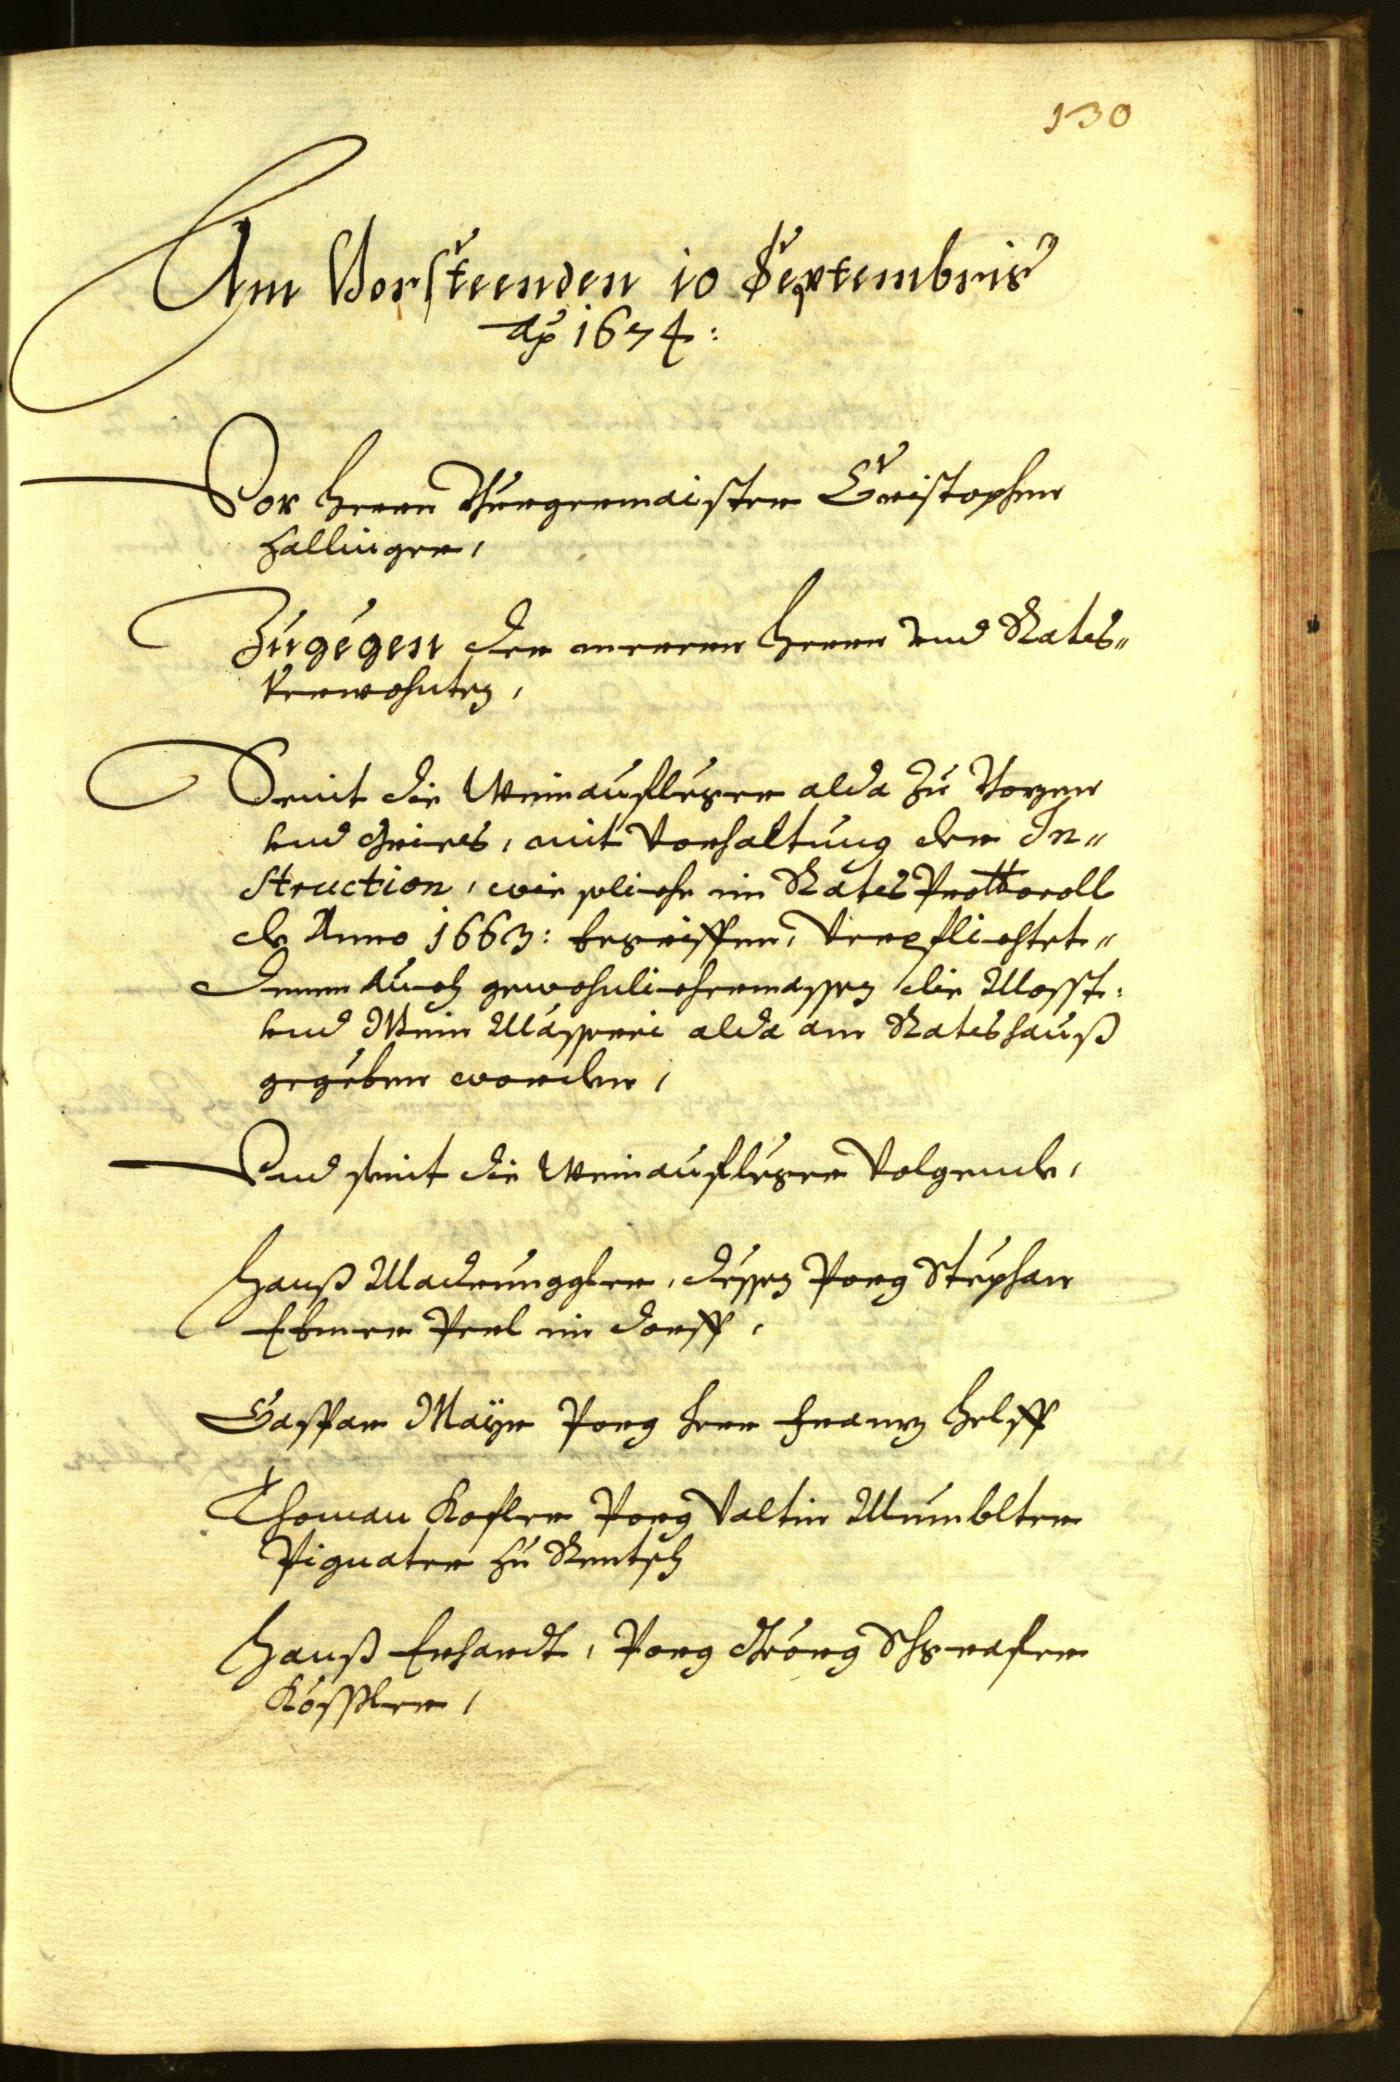 130
Am Vorsteenden 10 Septembris
Ao 1674:
Vor herrn Burgermaister Cristophen
Hallinger,
Zugegen der merern herrn und Rats„
verwohnten,
Seint die Weinaufleger alda zu Bozen
und Gries, mit Vorhaltung der In„
struction, wie solliche im Rats Prottocoll
de Anno 1663: begriffen, Verpflichtet„
Denen auch gewohnlichermassen die Most:
und Wein Masserei alda am Ratshauß
gegeben worden,
Und seint die Weinaufleger Volgende,
Hanß Madrunggler, dessen Porg Stephan
Ebner Perl im dorff,
Caspar Mayr Porg herr Franz Helff
Thoman Kofler Porg Valtin Mumblter
Pignater zu Rentsch
Hanß Erhardt, Porg Georg Schgrafer
Kössler,